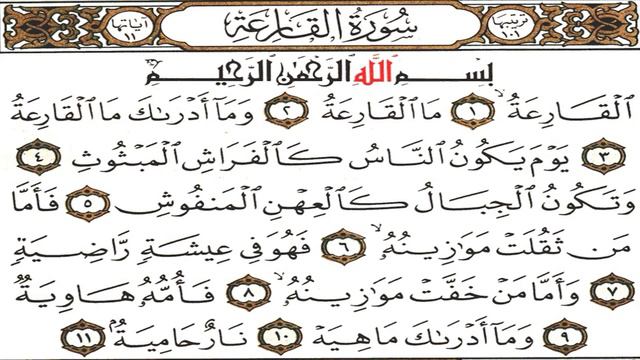 ترتيبها ١٠١ سُورَةُ القَارِعَةِ آياتها ١١
بِسْمِ اللَّهِ الرَّحْمَٰنِ الرَّحِيمِ
ٱلْقَارِعَةُ ١ مَا ٱلْقَارِعَةُ ٢ وَمَآ أَدْرَىٰكَ مَا ٱلْقَارِعَةُ
٣ يَوْمَ يَكُونُ ٱلنَّاسُ كَٱلْفَرَاشِ ٱلْمَبْثُوثِ ٤
وَتَكُونُ ٱلْجِبَالُ كَٱلْعِهْنِ ٱلْمَنفُوشِ ٥ فَأَمَّا
مَن ثَقُلَتْ مَوَٰزِينُهُۥ ٦ فَهُوَ فِي عِيشَةٍ رَّاضِيَةٍ
٧ وَأَمَّا مَنْ خَفَّتْ مَوَٰزِينُهُۥ ٨ فَأُمُّهُۥ هَاوِيَةٌ
٩ وَمَآ أَدْرَىٰكَ مَا هِيَهْ ١٠ نَارٌ حَامِيَةٌۢ ١١